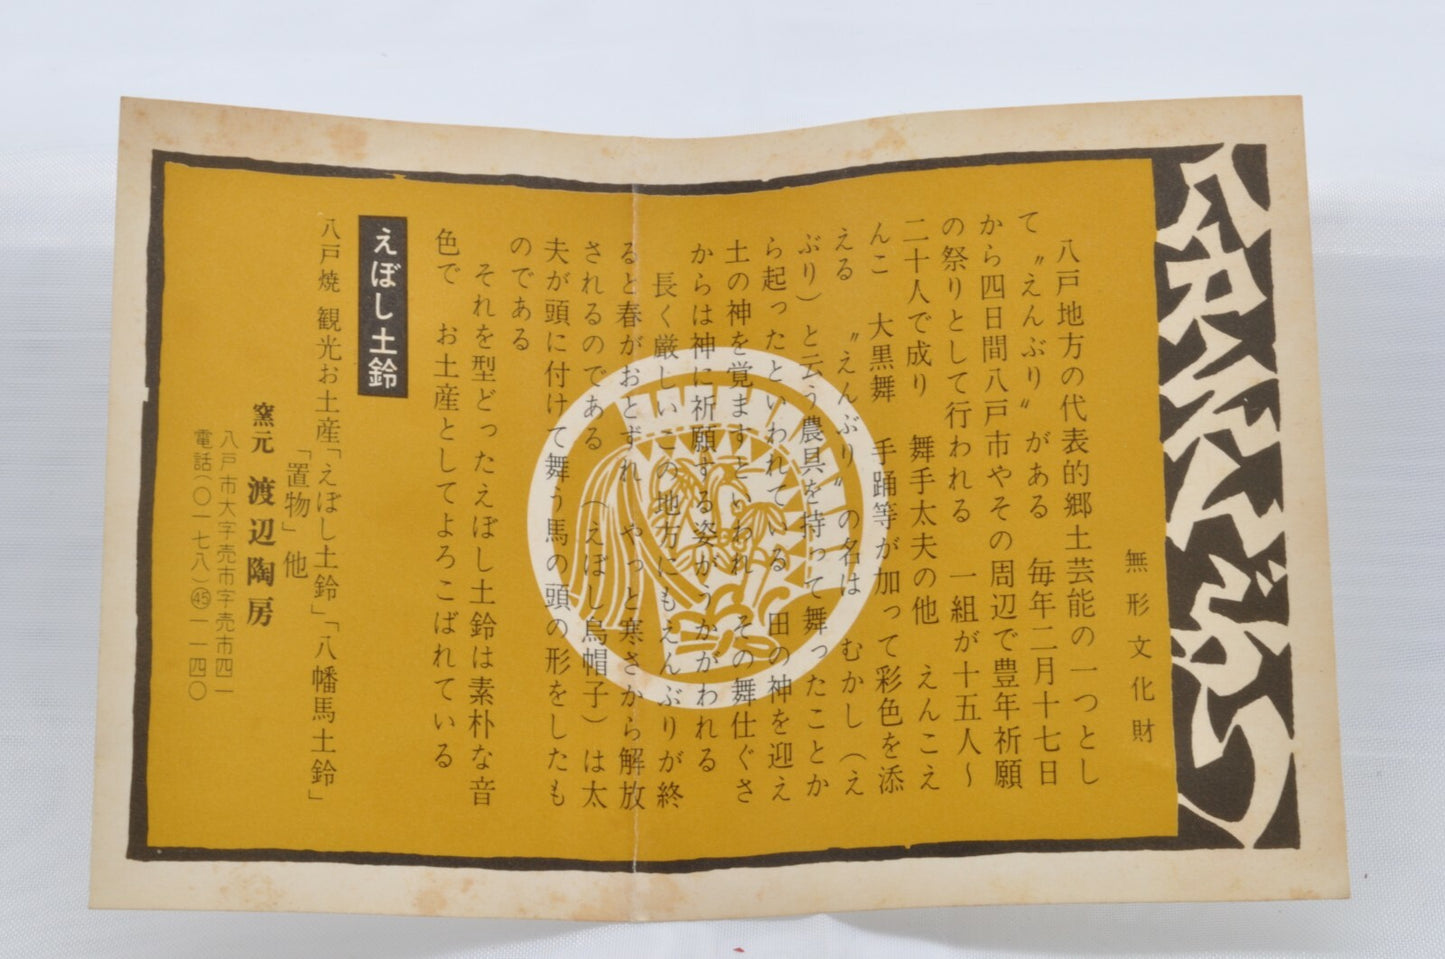 えんぶり
無形文化財
八戸地方の代表的郷土芸能の一つとし
て〝えんぶり〟がある　毎年二月十七日
から四日間八戸市やその周辺で豊年祈願
の祭りとして行われる　一組が十五人〜
二十人で成り　舞手太夫の他　えんこえ
んこ　大黒舞　手踊等が加って彩色を添
える　〝えんぶり〟の名は　むかし（え
ぶり）と云う農具を持って舞ったことか
ら起ったといわれている　田の神を迎え
土の神を覚ますといわれ　その舞仕ぐさ
からは神に祈願する姿がうかがわれる
長く厳しいこの地方にもえんぶりが終
ると春がおとずれ　やっと寒さから解放
されるのである　（えぼし烏帽子）は太
夫が頭に付けて舞う馬の頭の形をしたも
のである
それを型どったえぼし土鈴は素朴な音
色で　お土産としてよろこばれている
えぼし土鈴
八戸焼 観光お土産「えぼし土鈴」「八幡馬土鈴」
「置物」他
窯元 渡辺陶房
八戸市大字売市字売市四一
電話（〇一七八）㊺一一四〇